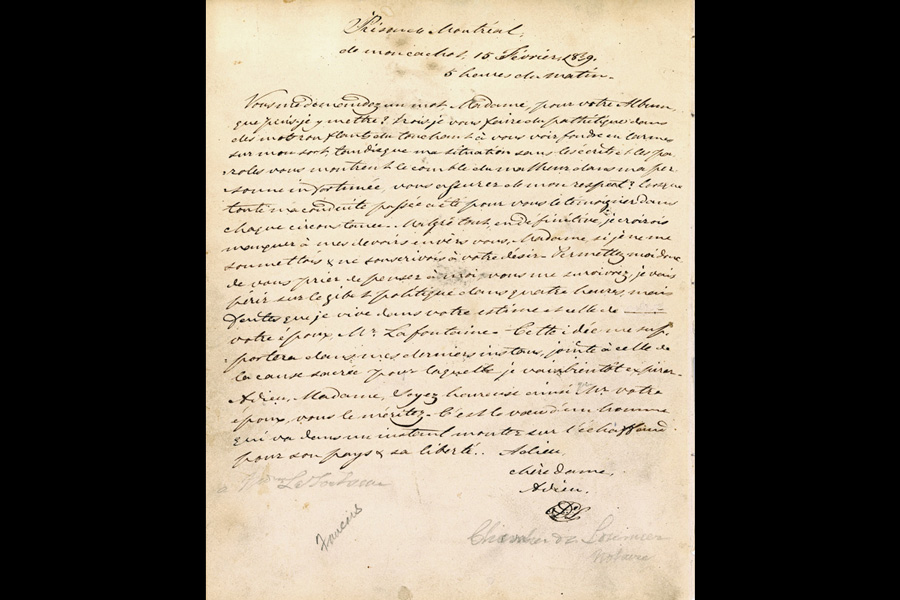 Prison de Montréal,
de mon cachot, 15 Février, 1839.
5 heures du matin.
Vous me demandez un mot, Madame, pour votre Album,
que puis-je y mettre? Irois-je vous faire du pathétique dans
des mots ronflants du touchant à vous voir fondre en larmes
sur mon sort, tandis que ma situation sans les écrits et les pa-
roles vous montrent le comble du malheur dans ma per-
sonne infortunée, vous assurez de mon respect? lorsque
toute ma conduite passée a été pour vous le témoigner dans
chaque circonstance. Malgré tout, en définitive, je croirois
manquer à mes devoirs envers vous, Madame, si je ne me
soumettois & ne souscrivois à votre désir. Permettez moi donc
de vous prier de penser à moi, vous me survivrez, je vais
périr sur le gibet politique dans quatre heures, mais
faites que je vive dans votre estime et celle de
votre époux, Mr. La fontaine. Cette idée me sup-
portera dans mes derniers instans, jointe à celle de
la cause sacrée pour laquelle je vais bientôt expirer.
Adieu, Madame, Soyez heureuse ainsi que votre
époux, vous le méritez. C'est le vœu d'un homme
qui va dans un instant monter sur l'échaffaud
pour son pays & sa liberté. Adieu,
chère dame,
Adieu,
CDL
a Mdme Lafontaine
Chevalier de Lorimier
Notaire